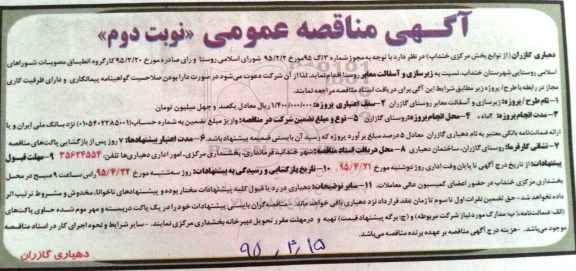 آگهی مناقصه عمومی «نوبت دوم»
دهیاری گازران (از توابع بخش مرکزی خنداب) در نظر دارد با توجه به مجوز شماره 3/گ 95 مورخ 95/2/2 شورای اسلامی روستا و رای صادره مورخ 95/2/20 کارگروه انطباق مصوبات شوراهای
اسلامی روستایی شهرستان خنداب، نسبت به زیرسازی و آسفالت معابر روستا اقدام نماید. لذا از آن شرکت دعوت می‌شود در صورت دارا بودن صلاحیت گواهینامه پیمانکاری و دارای ظرفیت کاری
مجاز در رابطه با طرح / پروژه زیر مطابق شرایط این آگهی برای دریافت اسناد مناقصه مراجعه نمایند.
1- نام طرح / پروژه: زیرسازی و آسفالت معابر روستای گازران 2- سقف اعتباری پروژه: 1/400/000/000 ریال معادل یکصد و چهل میلیون تومان
3- مدت انجام پروژه: ماه 4- محل انجام پروژه: روستای گازران 5- نوع و مبلغ تضمین شرکت در مناقصه: واریز مبلغ تضمین به شماره حساب نزد بانک ملی ایران و یا
ارائه ضمانتنامه بانکی معتبر به نام دهیاری گازران معادل 5 درصد مبلغ برآورد پروژه که رسید آن بایستی ضمیمه پیشنهاد باشد. 6- مدت اعتبار پیشنهادها: 7 روز پس از بازگشایی پاکت‌های مناقصه
7- نشانی کارفرما: روستای گازران، ساختمان دهیاری 8- محل دریافت اسناد مناقصه: شهر خنداب، فرمانداری، بخشداری مرکزی، امور اداری دهیاری‌ها تلفن: 35624554 9- مهلت قبول
پیشنهادات: از تاریخ درج آگهی تا پایان وقت اداری روز دوشنبه مورخ 95/4/21 10- تاریخ بازگشایی و رسیدگی به پیشنهادات: روز سه‌شنبه مورخ 95/4/22 راس ساعت 9 صبح در محل
بخشداری مرکزی خنداب در حضور اعضای کمیسیون عالی معاملات. 11- سایر توضیحات: دهیاری در رد یا قبول کلیه پیشنهادات مختار بوده و پیشنهادهای ناخوانا، مخدوش و مشروط ترتیب اثر
داده نخواهد شد. حق تضمین نفرات اول تا سوم تا زمان عقد قرارداد نزد دهیاری باقی خواهد ماند. مناقصه‌گران بایستی پیشنهادات خود را در یک پاکت دربسته و مهر و موم شده حاوی پاکت‌های
(الف: ضمانت‌نامه)، (ب: مدارک مورد نیاز شرکت مربوطه) و (ج: برگه پیشنهاد قیمت) تهیه و در مهلت مقرر تحویل دبیرخانه بخشداری مرکزی نمایند. سایر شرایط و نحوه اجرای کار در اسناد مناقصه
موجود می‌باشد. هزینه درج آگهی مناقصه بر عهده برنده مناقصه می‌باشد.
دهیاری گازران
95/4/15